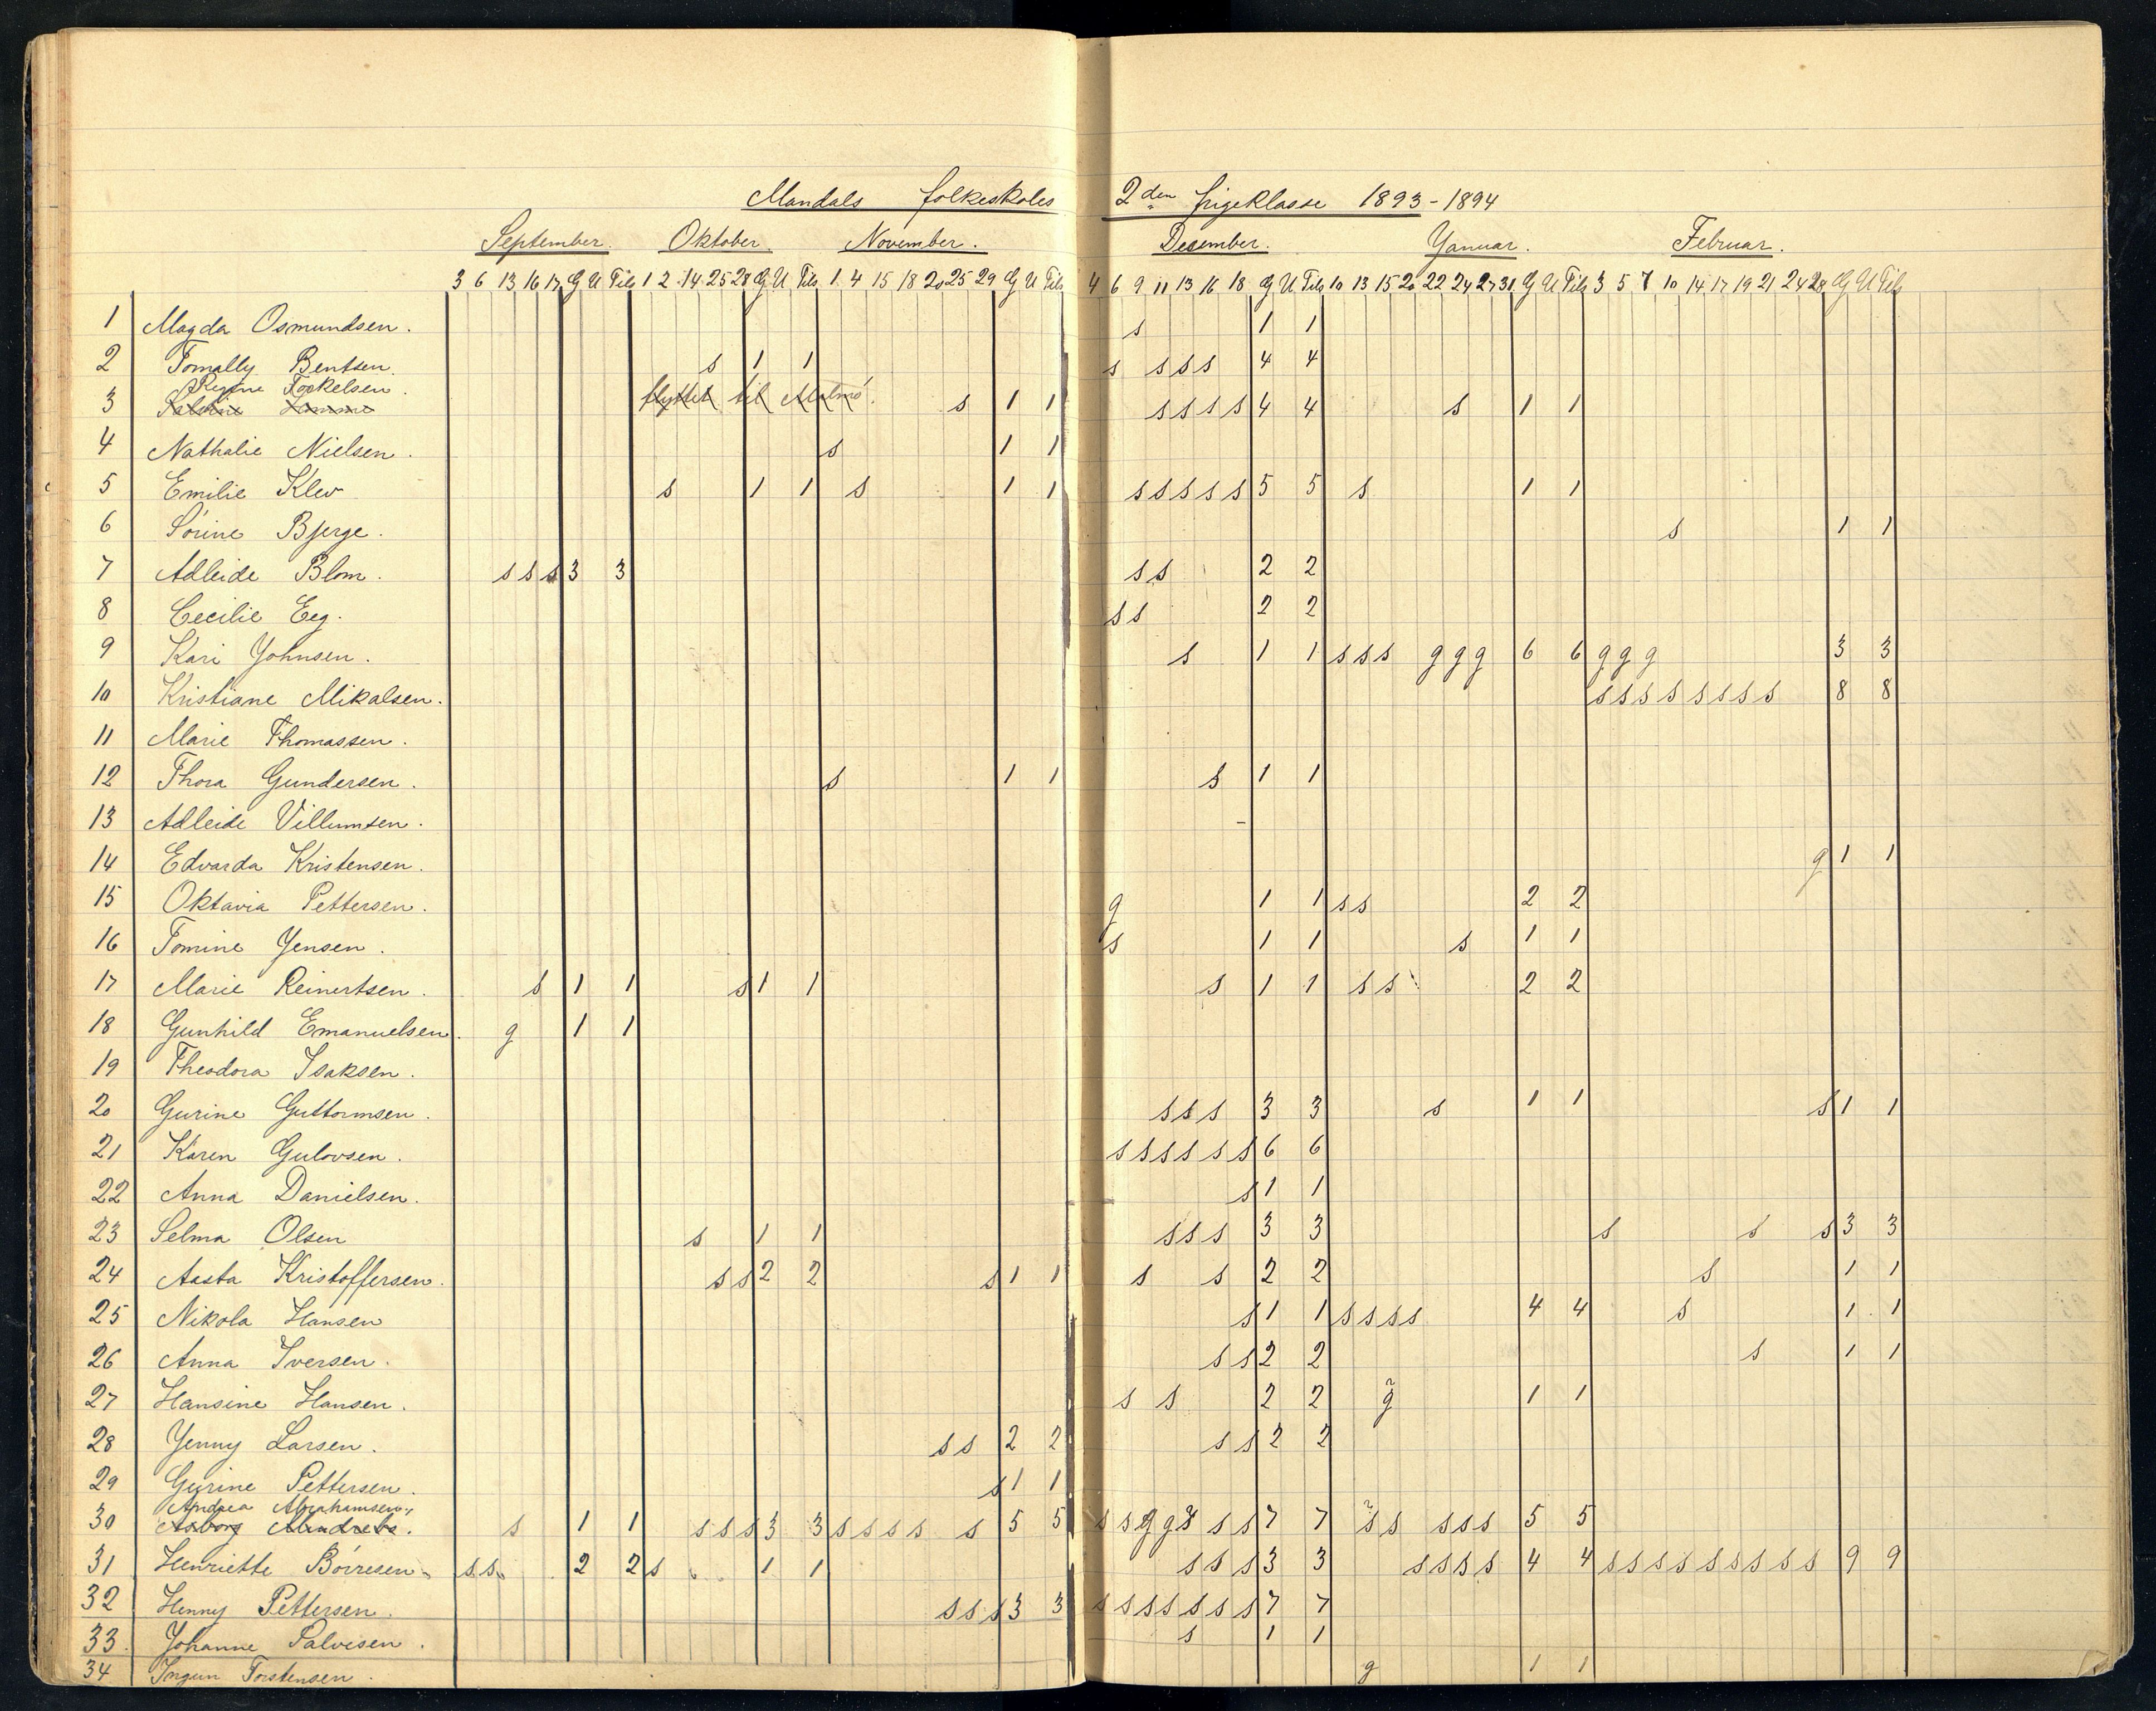 Mandals folkeskoles 2den frigeklasse 1893-1894
September. Oktober. November. Desember. Yanuar. Februar.
3 6 13 16 17 G U Tils 1 2 14 25 28 G U Tils 1 4 15 18 20 25 29 G U Tils 4 6 9 11 13 16 18 G U Tils 10 13 15 20 22 24 27 31 G U Tils 3 5 7 10 14 17 19 21 24 28 G U Tils
1 Magda Osmundsen. s 1 1
2 Tomally Bentsen. s 1 1 s s s s 4 4
Regine Torkelsen.
3 flyttet til Malmö. s 1 1 s s s s 4 4 s 1 1
4 Nathalie Nielsen. s 1 1
5 Emilie Klev s 1 1 s 1 1 s s s s s 5 5 s 1 1
6 Sörine Bjerge. s 1 1
7 Adleide Blom. s s s 3 3 s s 2 2
8 Cecilie Eeg. s s 2 2
9 Kari Yohnsen. s 1 1 s s s g g g 6 6 g g g 3 3
10 Kristiane Mikalsen. s s s s s s s s 8 8
11 Marie Thomassen.
12 Thora Gundersen. s 1 1 s 1 1
13 Adleide Villumsen.
14 Edvarda Kristensen. g 1 1
15 Oktavia Pettersen. g 1 1 s s 2 2
16 Tomine Yensen. s 1 1 s 1 1
17 Marie Reinertsen. s 1 1 s 1 1 s 1 1 s s 2 2
18 Gunhild Emanuelsen. g 1 1
19 Theodora Isaksen.
20 Gurine Guttormsen. s s s 3 3 s 1 1 s 1 1
21 Karen Gulovsen. s s s s s s 6 6
22 Anna Danielsen. s 1 1
23 Selma Olsen s 1 1 s s s 3 3 s s s 3 3
24 Aasta Kristoffersen. s s 2 2 s 1 1 s s 2 2 s 1 1
25 Nikola Hansen s 1 1 s s s s 4 4 s 1 1
26 Anna Iversen. s s 2 2 s 1 1
27 Hansine Hansen. s s 2 2 g 1 1
28 Yenny Larsen. s s 2 2 s s 2 2
29 Gurine Pettersen. s 1 1
Andrea Abrahamsen.
30 s 1 1 s s s 3 3 s s s s s 5 5 s s g g s s 7 7 s s s s s 5 5
31 Henriette Börresen. s s 2 2 s 1 1 s s s 3 3 s s s s 4 4 s s s s s s s s s 9 9
32 Henny Pettersen. s s s 3 3 s s s s s s s 7 7
33. Yohanne Salvesen. s 1 1
34 Ingun Torstensen. g 1 1